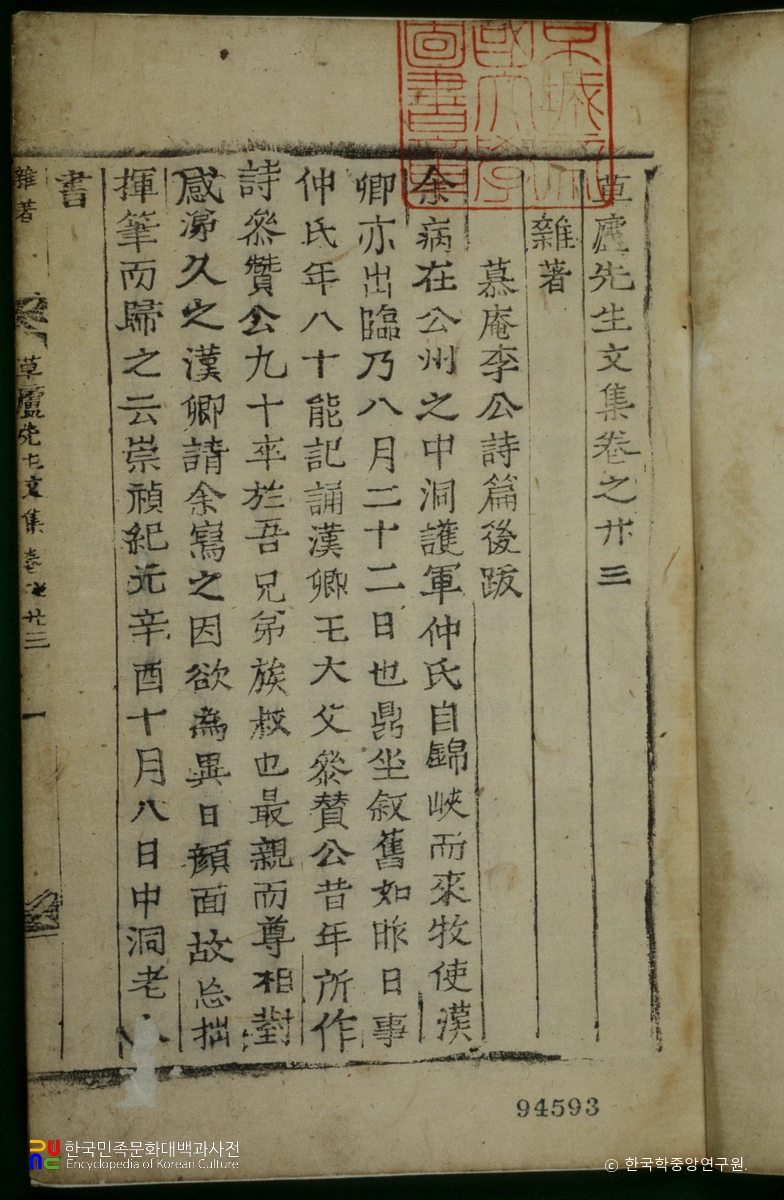 草廬先生文集卷之卄三
雜著
慕庵李公詩篇後跋
余病在公州之中洞護軍仲氏自錦峽而來牧使漢
卿亦出臨乃八月二十二日也鼎坐叙舊如昨日事
仲氏年八十能記誦漢卿王大父叅賛公昔年所作
詩叅贊公九十卒於吾兄弟族叔也最親而尊相對
感涕久之漢卿請余寫之因欲為異日顔面故忘拙
揮筆而歸之云崇禎紀元辛酉十月八日中洞老人
書
雜著
草廬先生文集 卷之卄三
一
94593
한국민족문화대백과사전
Encyclopedia of Korean Culture
© 한국학중앙연구원.